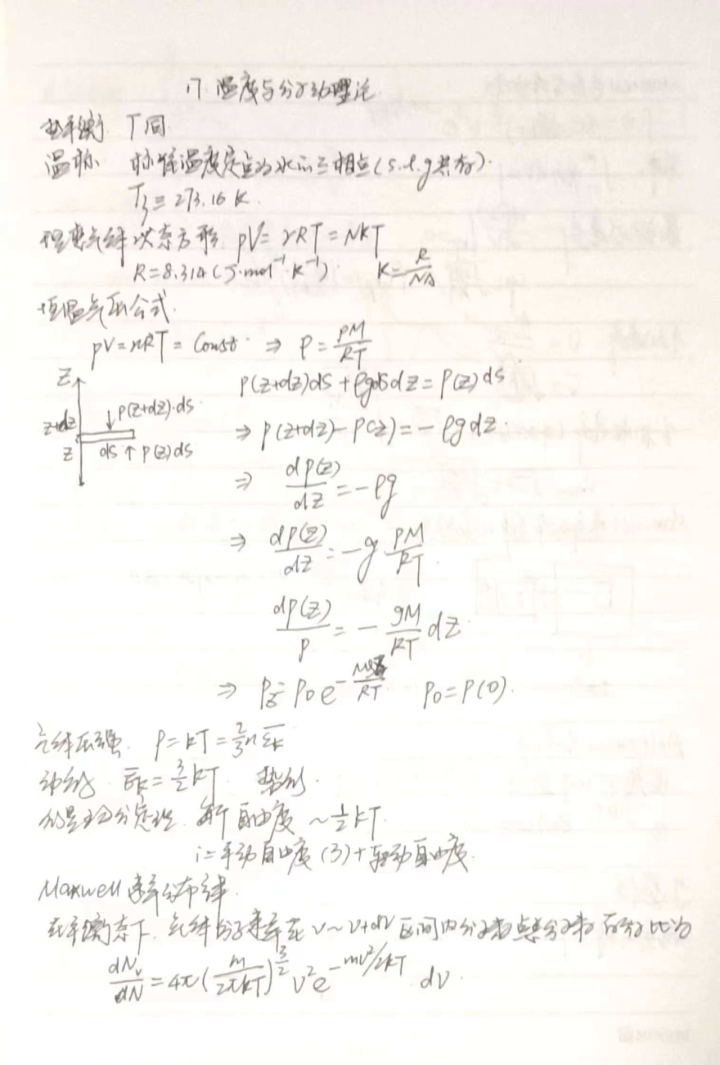 17 温度与分子动理论
热平衡 T同
温标 标准温度定点为水的三相点(s.l.g共存).
T₃ ≡ 273.16 K
理想气体状态方程 pV = νRT = NKT
R=8.314 (J·mol⁻¹·K⁻¹) K=R/NA
恒温气压公式
pV = nRT = Const ⇒ ρ = pM/RT
Z
p(z+dz)ds + ρgdsdz = p(z)ds
p(z+dz)·ds
z+dz
z
ds ↑ p(z)ds
⇒ p(z+dz) - p(z) = -ρgdz
⇒ dp(z)/dz = -ρg
⇒ dp(z)/dz = -g pM/RT
dp(z)/p = - gM/RT dz
⇒ pz = p0 e^-Mgz/RT p0 = p(0).
气体压强 p = kT = 2/3 n ε̄k
动能 ε̄k = 3/2 kT 势能
能量均分定理 每个自由度 ~ 1/2 kT
i = 平动自由度(3) + 转动自由度
Maxwell 速率分布律
在平衡态下 气体分子速率在 v~v+dv 区间内分子数占总分子数百分比为
dNv/dN = 4π (m/2πkT)^3/2 v² e^-mv²/2kT dv